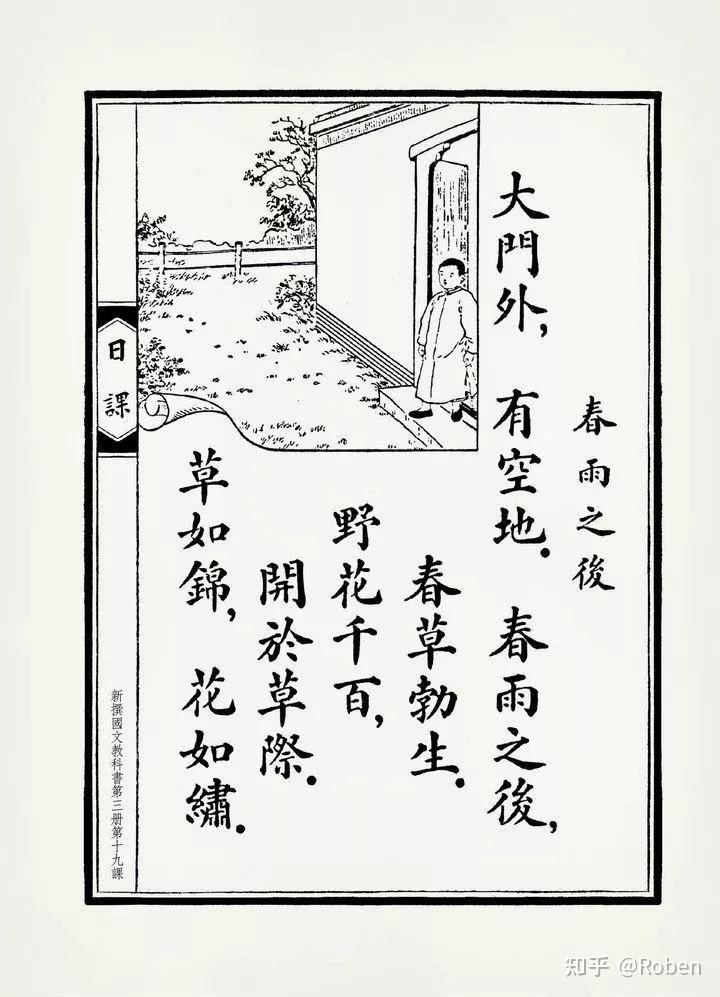 春雨之後
大門外，有空地．春雨之後，
春草勃生．
野花千百，
開於草際．
草如錦，花如繡．
日課
新撰國文教科書第三册第十九課
知乎 @Roben